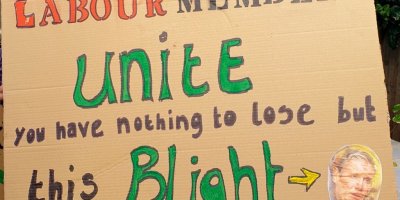 LABOUR MEMBE
UNITE
you have nothing to lose but
this Blight